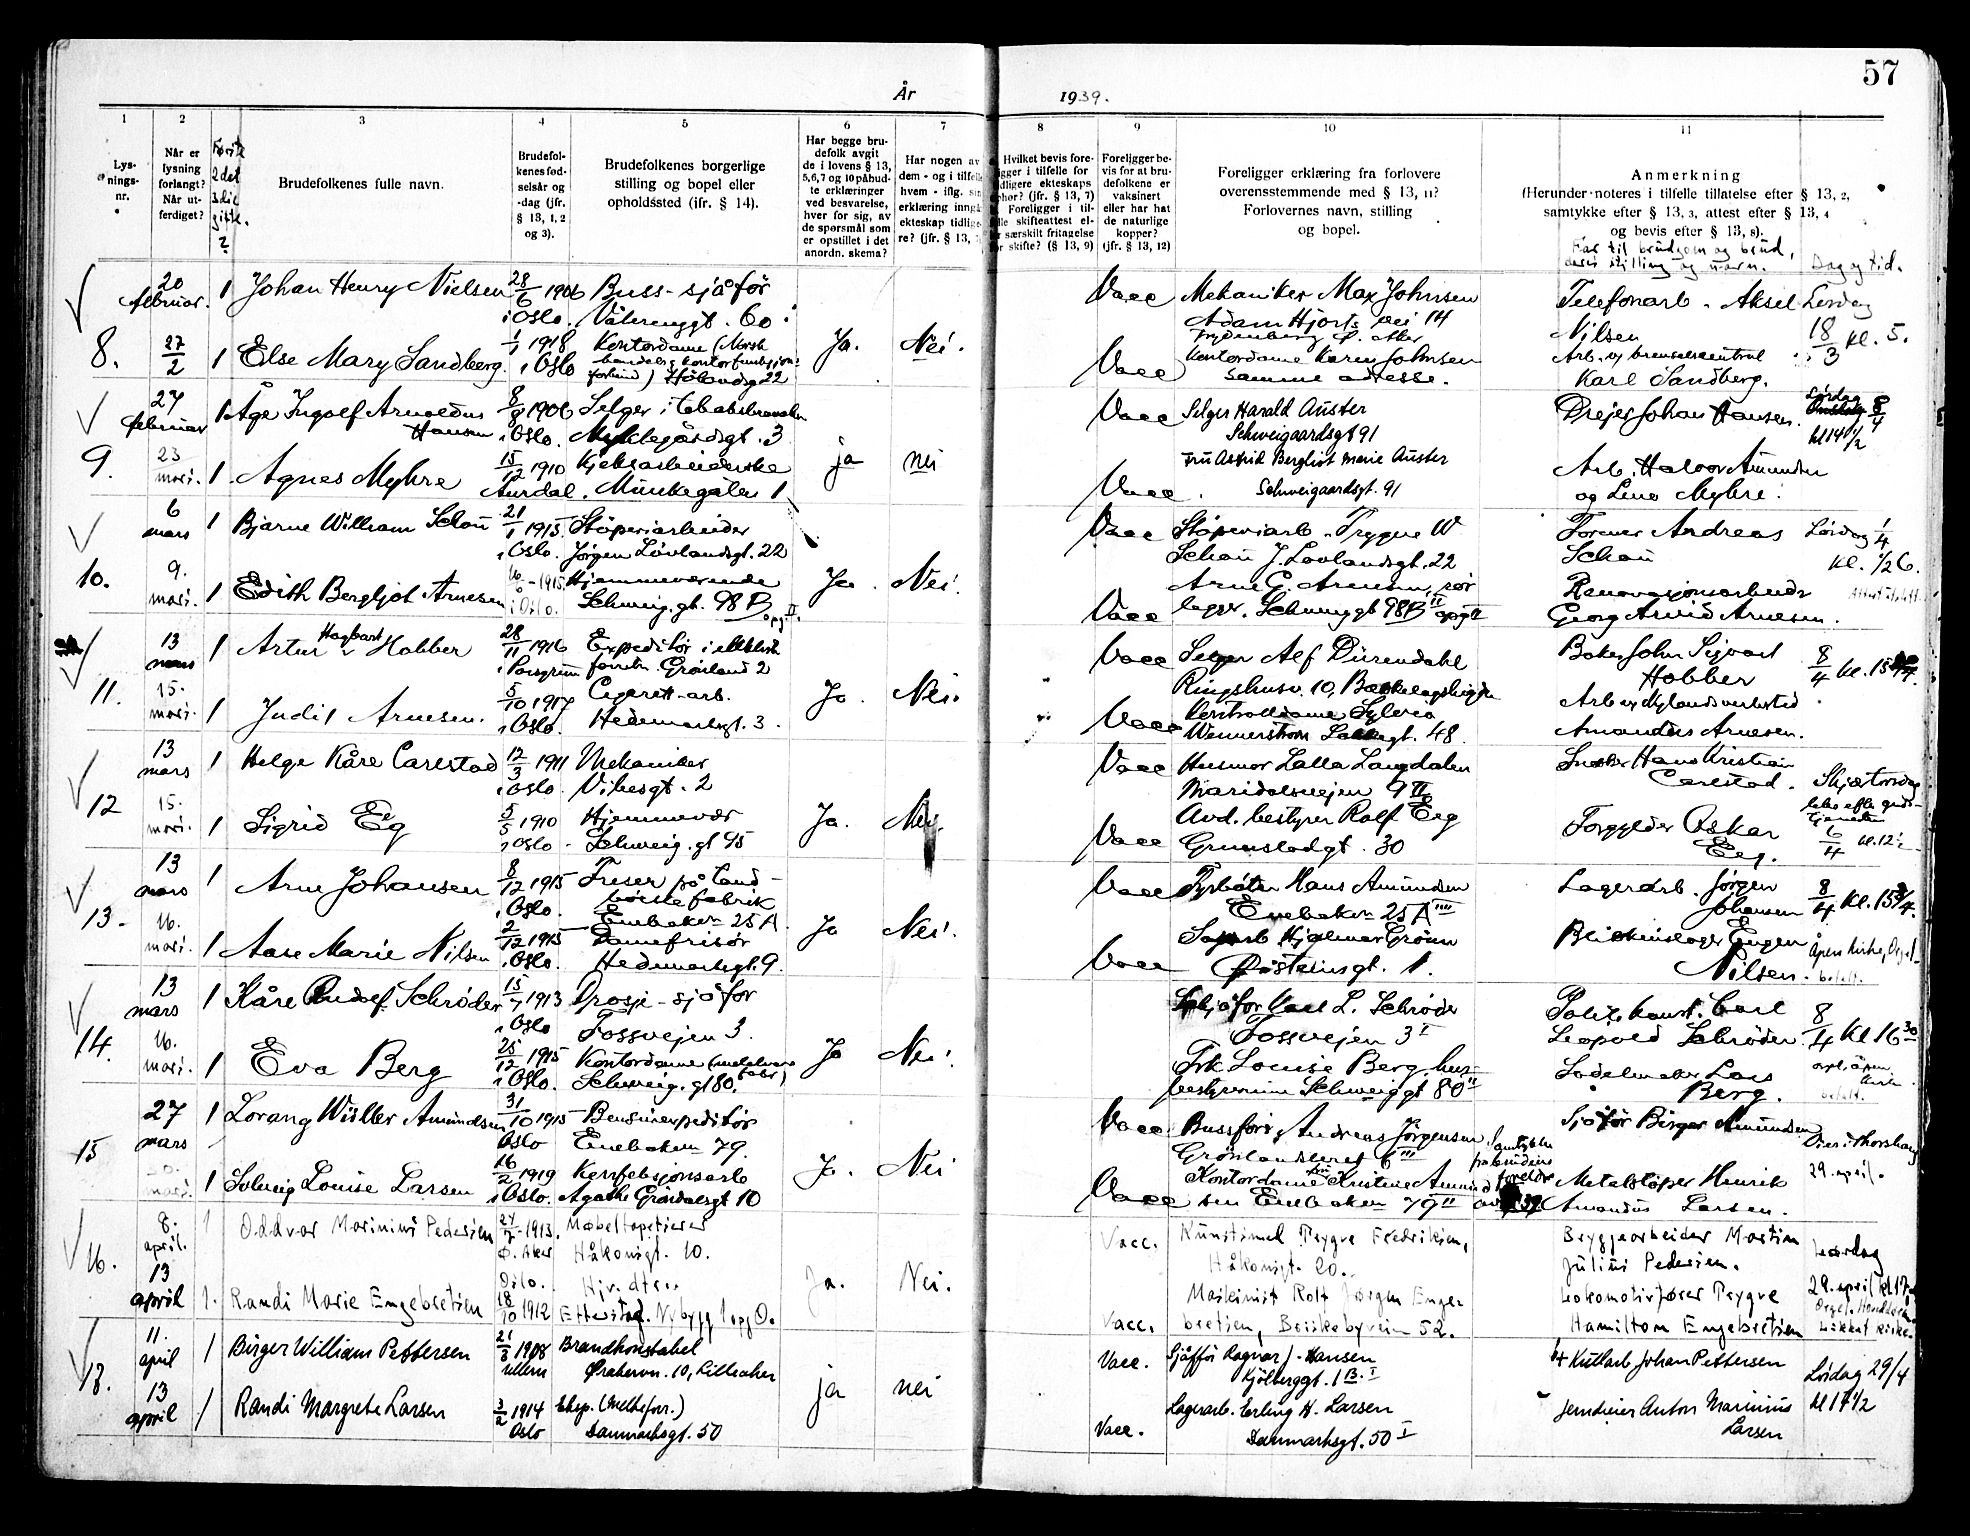 57
År 1939.
1 2 3 4 5 6 7 8 9 10 11
Lys-
nings-
nr.
Når er
lysning
forlangt?
Når ut-
ferdiget?
Første
2 det
gift.
?
Brudefolkenes fulle navn.
Brudefol-
kenes fød-
selsår og
-dag (jfr.
§ 13, 1, 2
og 3).
Brudefolkenes borgerlige
stilling og bopel eller
opholdssted (ifr. § 14).
Har begge bru-
defolk avgit
de i lovens § 13,
5,6,7 og 10 påbud-
te erklæringer
ved besvarelse,
hver for sig, av
de spørsmål som
er opstillet i det
anordn. skema?
Har nogen av
dem - og i tilfelle
hvem - iflg. sin
erklæring inngå
ekteskap tidlige
re? (jfr. § 13,
Hvilket bevis fore-
ligger i tilfelle for
tidligere ekteskaps
ophør? (jfr. § 13, 7)
Foreligger i til-
felle skifteattest el-
særskilt fritagelse
for skifte? (§ 13, 9)
Foreligger be-
vis for at bru-
defolkene er
vaksinert
eller har hat
de naturlige
kopper?
(jfr. § 13, 12)
Foreligger erklæring fra forlovere
overensstemmende med § 13, 11?
Forlovernes navn, stilling
og bopel.
Anmerkning
(Herunder noteres i tilfelle tillatelse efter § 13, 2,
samtykke efter § 13, 3, attest efter § 13, 4
og bevis efter § 13, 8).
Far til brudgom og brud,
deres stilling og navn. Dag og tid.
20 februar. 1 Johan Henry Nielsen 28/6 1906 i Oslo. Buss-sjåfør Vålerenggt. 60. Vacc Mekaniker Max Johnsen Adam Hjorts vei 14 Ø. Aker Telefonarb. Aksel Nilsen Lørdag 18/3 kl. 5.
8. 27/2 1 Else Mary Sandberg. 1/1 1918 i Oslo Kontordame (Norsk handels og kontorfunksjon. forbund) Hølandsg. 22 Ja. Nei. Vacc Kontordame Karen Johnsen samme adresse. Arb. v/ brenselscentral Karl Sandberg.
27 februar 1 Åge Ingolf Arnoldus Hansen 8/8 1906 i Oslo. Selger i Myklegårdsgt. 3 Vacc Selger Harald Auster Schweigaardsgt 91 Dreier Johan Hansen. Lørdag 8/4 kl 14 1/2
9. 23 mars. 1 Agnes Myhre 15/12 1910 Aurdal. Kjeksarbeiderske Munkegaten 1 ja nei Vacc. Fru Astrid Bergliot Marie Auster Schweigaardsgt. 91 Arb. Halvor Amundsen og Lina Myhre.
6 mars 1 Bjarne William Schau 21/1 1915. i Oslo. Støperiarbeider Jørgen Løvlandsgt. 22 Vacc Støperiarb. Trygve W Schau J. Løvlandsgt. 22 Former Andreas Schau Lørdag 1/4 kl. 1/2 6.
10. 9. mars. 1 Edith Bergljot Arnesen 1915. i Oslo. Hjemmeværende Schweig. gt. 98 B oppg. II. Ja. Nei. Vacc Arne G. Arnesen, rør legger. Schweiggt 98B II oppg II Renovasjonsarbeider Georg Arvid Arnesen.
13 mars 1 Artur Hagbart Hobber 28/11 1916 i Porsgrunn Expeditør i forretn. Grønland 2 Vacc Selger Alf Dürendahl Ringshusv. 10, Bekkelagshøgda Baker John Sigvart Hobber 8/4 kl. 15
11. 15. mars. 1 Judit Arnesen. 5/10 1917 i Oslo. Cigarett-arb. Hedemarksgt. 3. Ja. Nei. Vacc Kontrolldame Sylvia Wennerstrøm gt. 48. Arb v/ Mylands verksted Amandus Arnesen.
13 mars 1 Helge Kåre Carlstad 12/3 1911 i Oslo. Mekaniker Vibesgt. 2 Vacc Husmor Lalla Langdalen Maridalsveien 9 II Snekker Hans Kristian Carlstad. Skjærtorsdag
12 15. mars. 1 Sigrid Eg 5/5 1910 i Oslo. Hjemmevær Schweig. gt 95 Ja. Nei. Vacc Avd. bestyrer Rolf Eeg Grimstadgt. 30 Forgylder Oskar Eeg. 6/4 kl. 12
13 mars 1 Arne Johansen 8/12 1915 i Oslo. Freser på tand-børstefabrik Enebakkvn 25 A Vacc Fyrbøter Hans Amundsen Enebakkvn 25 A IIII Lagerarb. Jørgen Johansen 8/4 kl. 15 3/4.
13. 16. mars. 1 Aase Marie Nilsen 2/12 1915 i Oslo. Damefrisør Hedemarksgt. 9. Ja Nei. Vacc Hjalmar Grønn Øisteinsgt. 1. Blikkenslager Eugen Nilsen. Åpen kirke, Orgel betalt.
13 mars 1 Kåre Rudolf Schrøder 15/7 1913 i Oslo Drosje-sjåfør Fossveien 3. Sjåfør Karl L. Schrøder Fossveien 3 I Politikonst. Carl Leopold Schrøder. 8/4 kl 16 30
14. 16. mars. 1 Eva Berg 25/12 1915 i Oslo. Kontordame Schweig. gt 80. Ja Nei. Frk Louise Berg. hus-bestyrerinne Schweiggt 80 II Sadelmaker Lars Berg. betalt.
27 mars 1 Lorang Willer Amundsen 31/10 1915 Oslo Bensinexpeditør Enebakkvn 79. Vacc Bussfører Andreas Jørgensen Grønlandsleret 6 III Samtykke fra brudens foreldre Sjåfør Birger Amundsen 29. april.
15 mars. 1 Solveig Louise Larsen 16/2 1919 i Oslo. Konfeksjonsarb Agathe Grøndalsgt 10 Ja. Nei Vacc Kontordame Kristine Amundsen Enebakkvn 79 II Metalstøper Henrik Amandus Larsen.
8. april. 1 Oddvar Marinius Pedersen 27/7 1913. Ø. Aker Møbeltapetserer Håkonsgt. 10. Vacc. Kunstsmed Trygve Fredriksen, Håkonsgt. 20. Bryggearbeider Martin Julius Pedersen. Lørdag
16. 13 april 1. Randi Marie Engebretsen Oslo. 18/10 1912 Hjv. dtr. Etterstad. Nybygg 1 oppg O. Ja. Nei. Vacc. Maskinist Rolf Jørgen Engebretsen, Bøskebyveien 52. Lokomotivfører Trygve Hamilton Engebretsen 29. april kl 17,
11. april 1 Birger William Pettersen 21/8 1908 Ullern Brandkonstabel Ørakervn. 10, Lilleaker Vacc. Sjåfør Ragnar J. Hansen Kjølberggt. 1 B. I Kullarb Johan Pettersen Lørdag 29/4
17. 13 april 1 Randi Margrete Larsen 3/2 1914 Oslo Eksp. (Melkeforr.) Danmarksgt. 50 ja nei Vacc. Lagerarb. Erling H. Larsen Danmarksgt. 50 I Jerndreier Anton Marinius Larsen kl 17 1/2